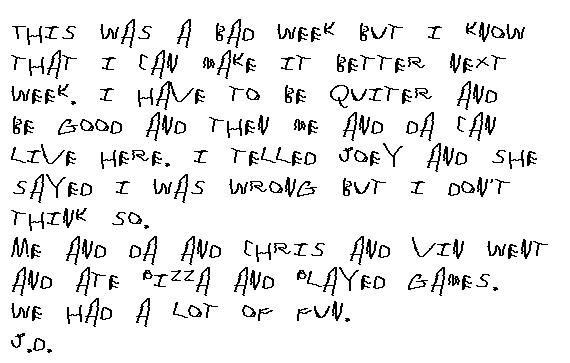 THIS WAS A BAD WEEK BUT I KNOW
THAT I CAN MAKE IT BETTER NEXT
WEEK. I HAVE TO BE QUITER AND
BE GOOD AND THEN ME AND DA CAN
LIVE HERE. I TELLED JOEY AND SHE
SAYED I WAS WRONG BUT I DON'T
THINK SO.
ME AND DA AND CHRIS AND VIN WENT
AND ATE PIZZA AND PLAYED GAMES.
WE HAD A LOT OF FUN.
J.D.